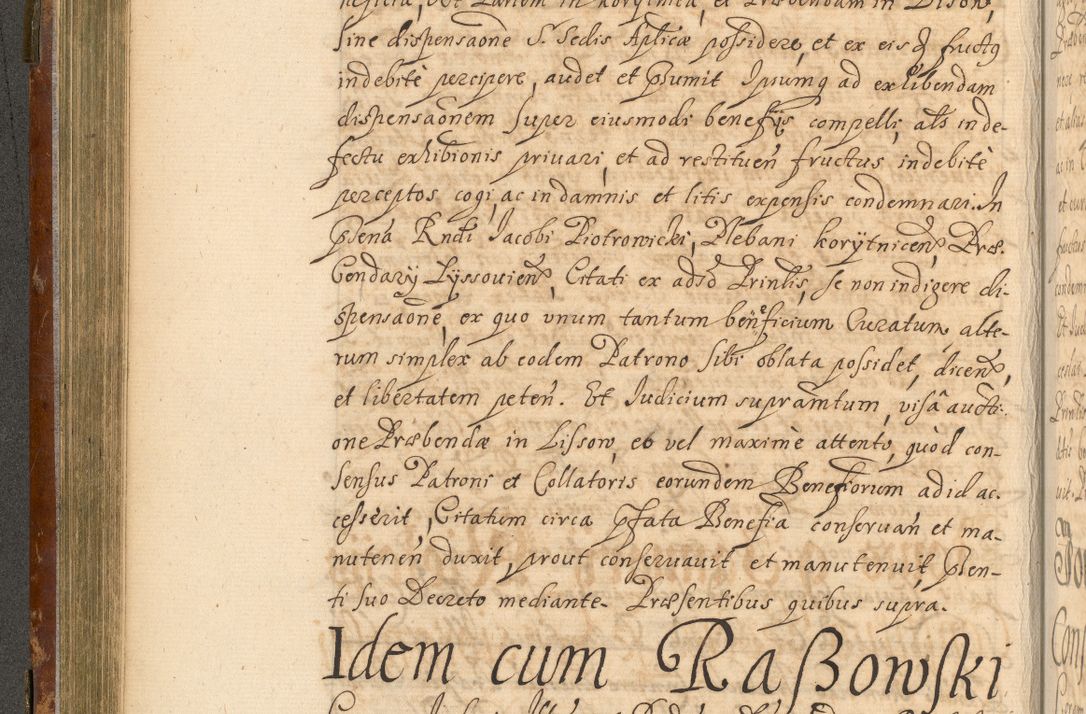 neficia, Vet Parem in Korytnica, et Præbendam in Lisow,
sine dispensaõne S. Sedis Aplicæ possidere, et ex eisd fructꝯ
indebitè percipere, audet et Psumit Ipsumq ad exhibendam
dispensaõnem super eiusmodi benefijs compelli, als in de-
fectu exhibitionis privari, et ad restitueñ fructus indebitè
perceptos cogi, ac in damnis et litis expensis condemnari. In
Psena Rndi Jacobi Piotrowicki, Plebani Korÿtnicen, Præ-
bendarÿ Lÿssouien, Citati ex adsoˢ Prinlis, se non indigere di-
spensaõne, ex quo vnum tantum beneficium Curatum, alte-
rum simplex ab eodem Patrono sibi oblata possidet, dicen,
et libertatem peteñ. Et Judicium supramtum, visâ aucti-
one Præbendæ in Lissow, eo vel maximè attento, quòd con-
sensus Patroni et Collatoris eorundem Benefiorum ad id ac-
cesserit, Citatum circa Pfata Benefia conseruañ et ma-
nuteneñ duxit, prout conseruauit et manutenuit Psen-
ti suo Decreto mediante. Præsentibus quibus supra.
Idem cum Raßowski